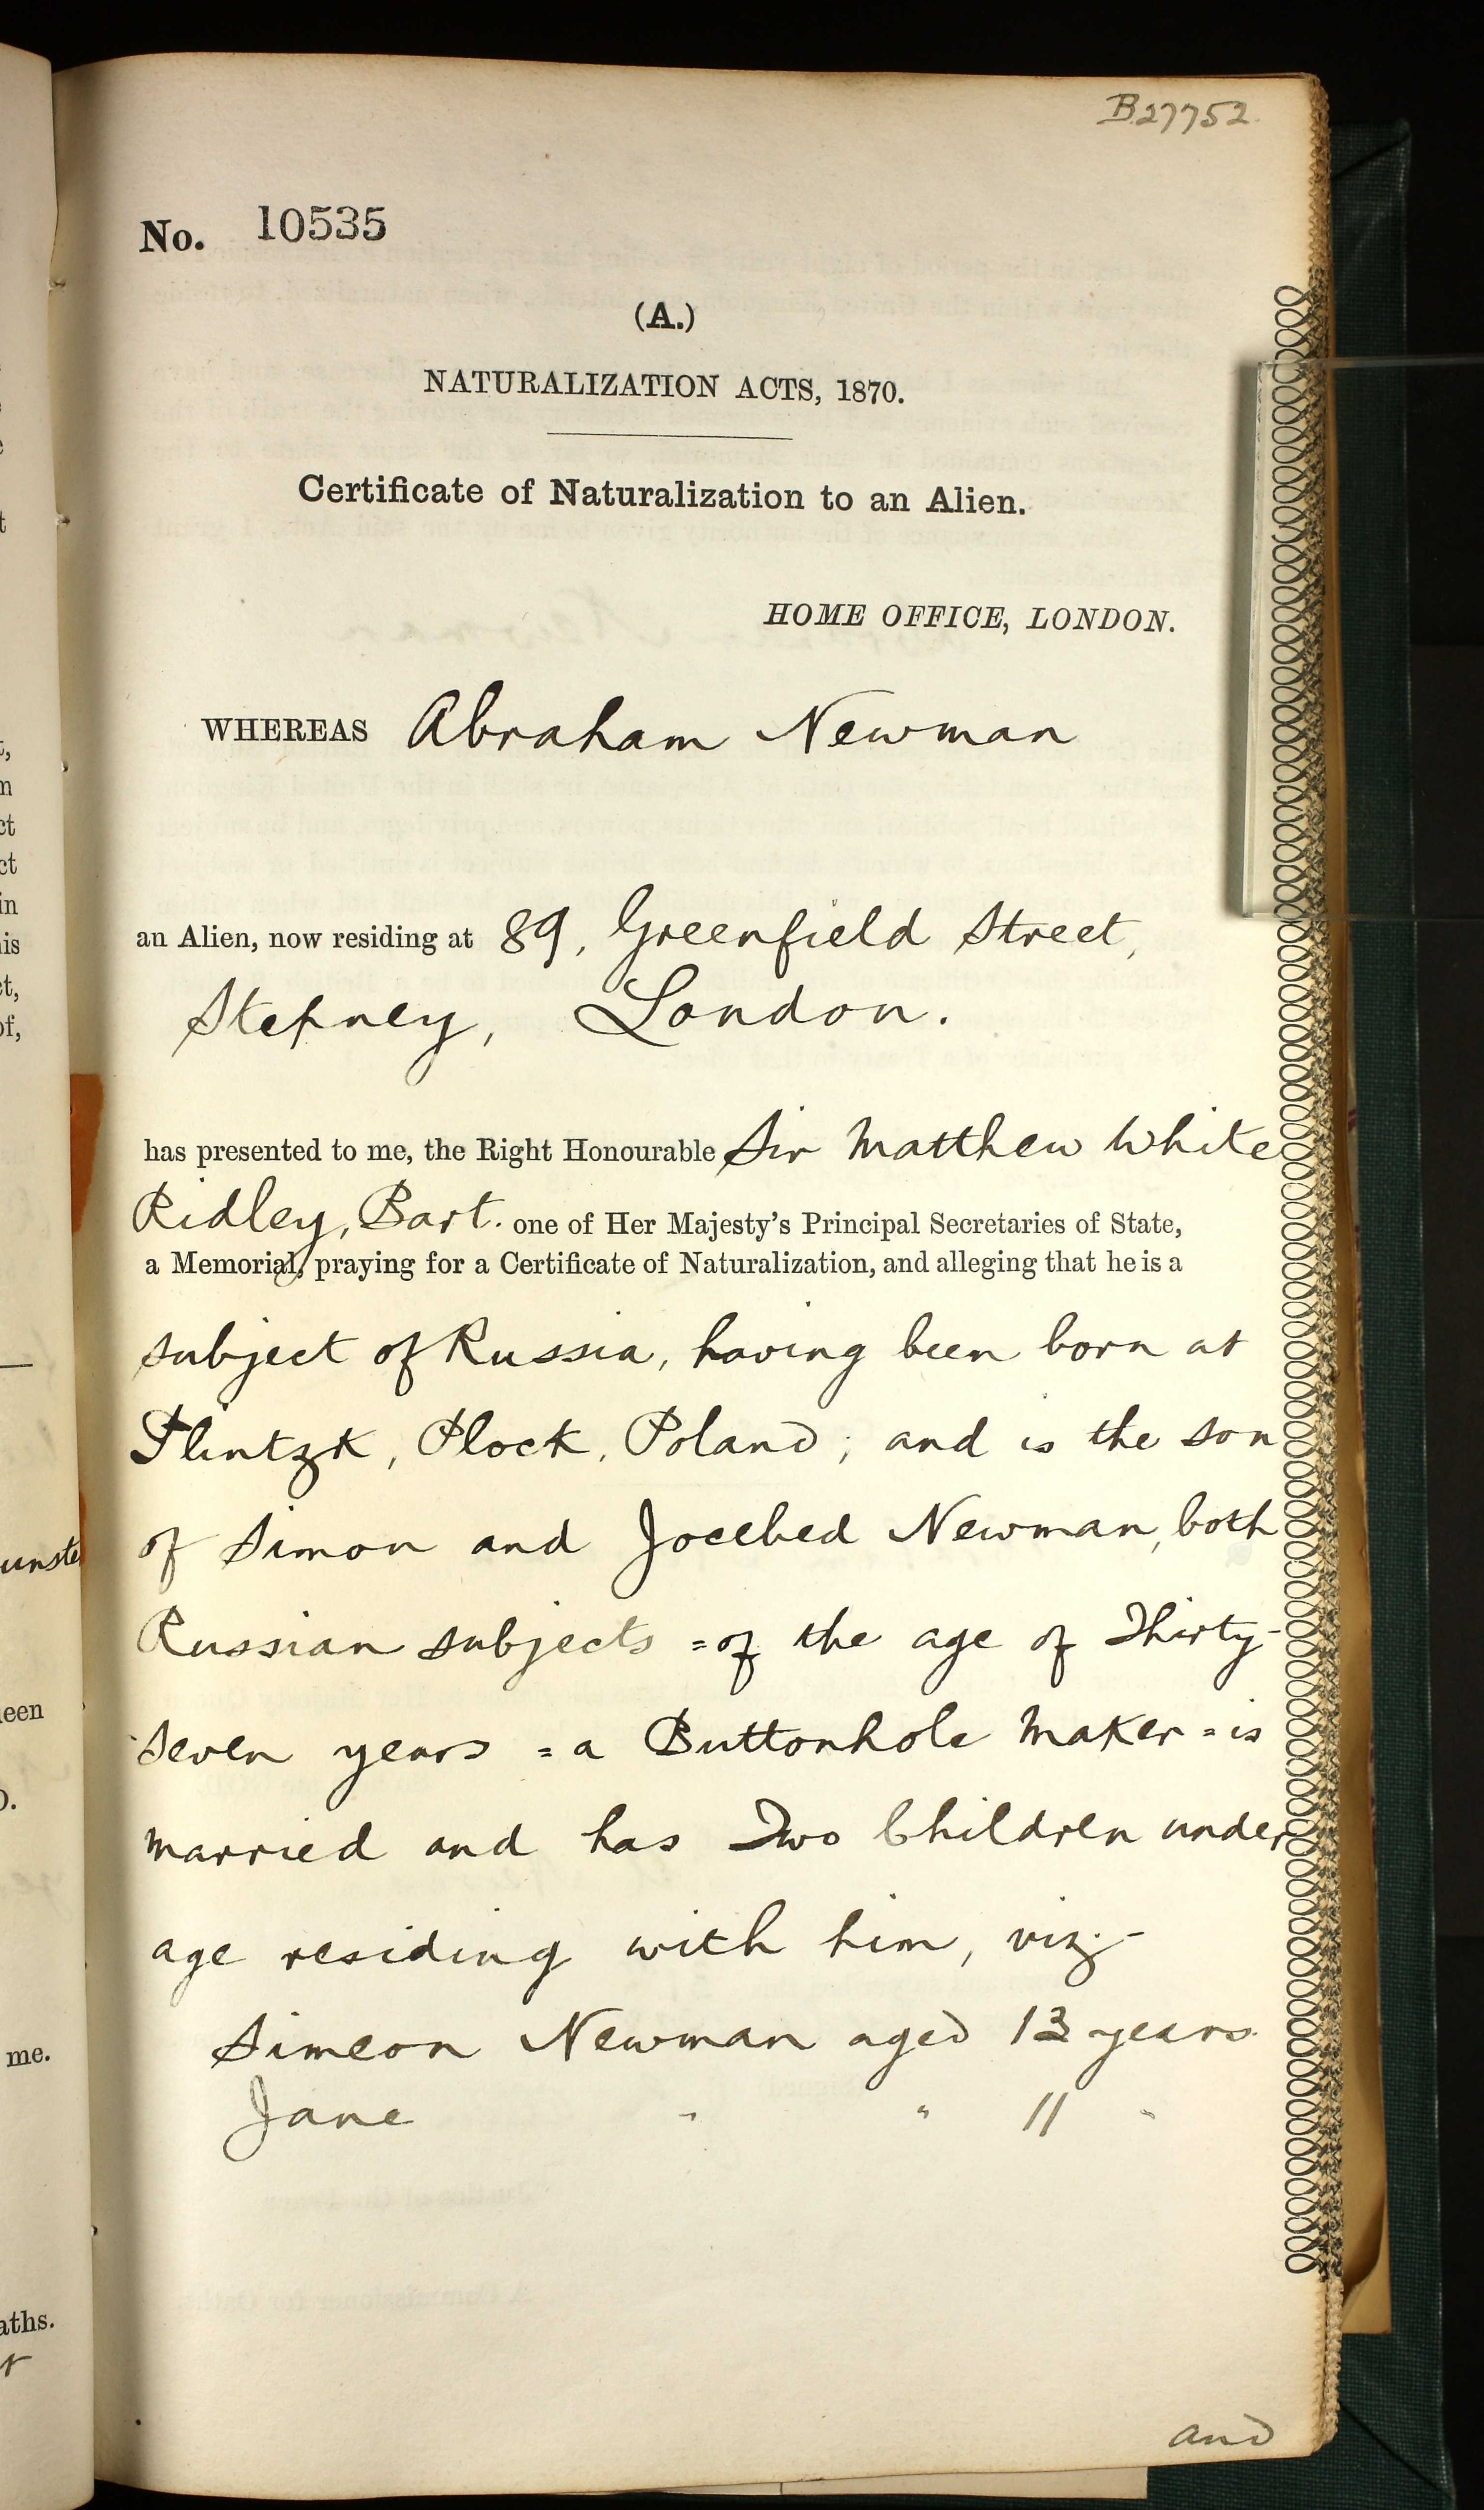 B27752.
No. 10535
(A.)
NATURALIZATION ACTS, 1870.
Certificate of Naturalization to an Alien.
HOME OFFICE, LONDON.
WHEREAS Abraham Newman
an Alien, now residing at 89, Greenfield Street,
Stepney, London.
has presented to me, the Right Honourable Sir Matthew White
Ridley, Bart. one of Her Majesty's Principal Secretaries of State,
a Memorial, praying for a Certificate of Naturalization, and alleging that he is a
subject of Russia, having been born at
Plintzk, Plock, Poland; and is the son
of Simon and Jocebed Newman, both
Russian subjects = of the age of Thirty-
seven years = a Buttonhole Maker = is
married and has Two Children under
age residing with him, viz:-
Simeon Newman aged 13 years.
Jane " " 11 "
and
t,
n
ct
ct
in
is
ct,
of,
unste
een
me.
aths.